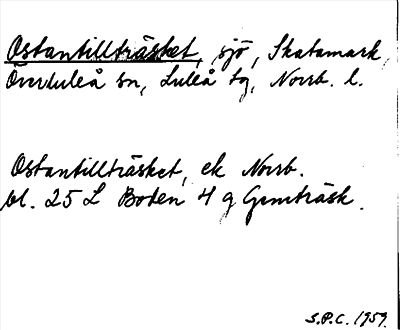 Östantillträsket, sjö, Skatamark,
Överluleå sn, Luleå tg, Norrb. l.
Östantillträsket, ek Norrb.
bl. 25 L Boden 4 g Gemträsk.
S.P.C. 1959.